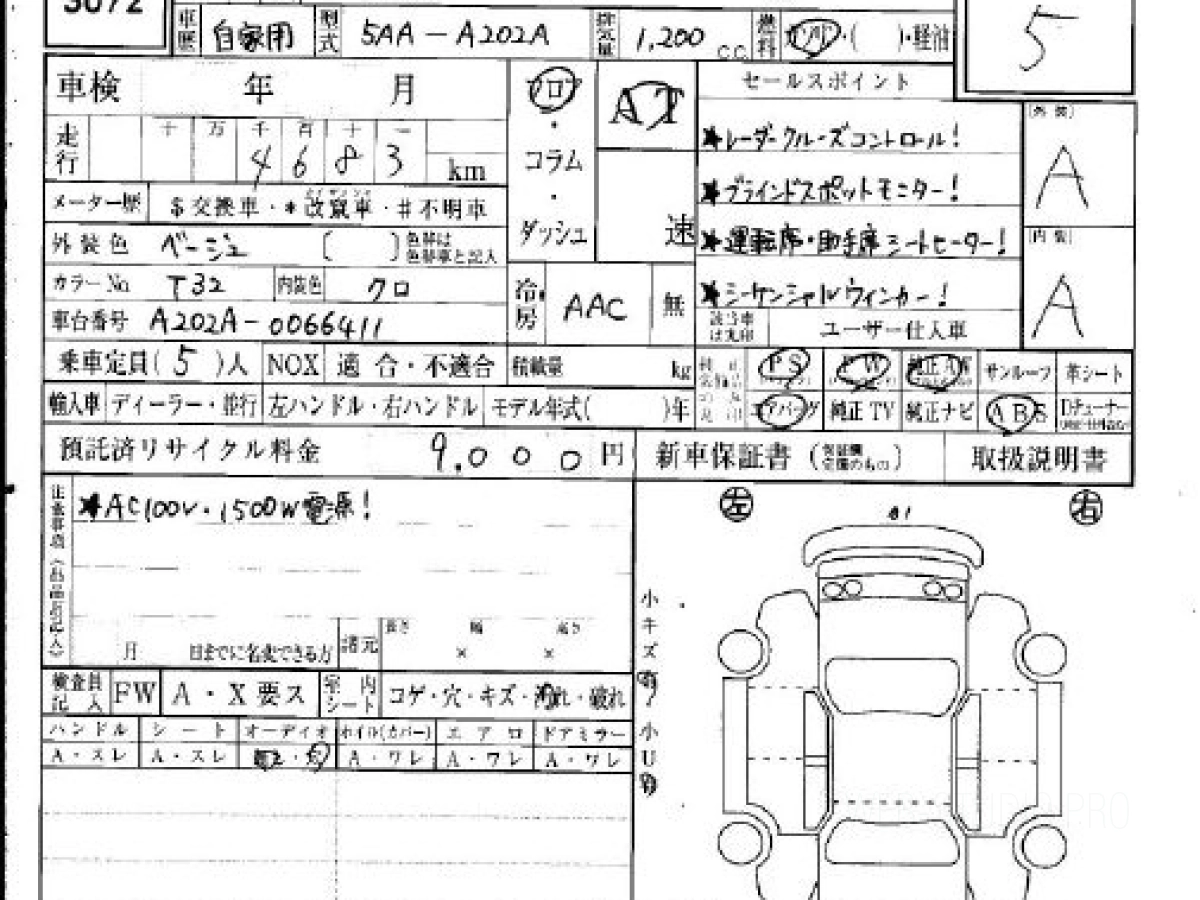 3072
車歴 自家用 型式 5AA-A202A 排気量 1,200 c.c. 燃料 ・( )・軽油
5
車検 年 月
フロア・コラム・ダッシュ
AT
速
セールスポイント
★レーダークルーズコントロール!
★ブラインドスポットモニター!
★運転席・助手席シートヒーター!
★シーケンシャルウィンカー!
(外装) A
(内装) A
走行 十 万 千 百 十 一
4 6 8 3 km
メーター歴 $交換車・*改竄車・#不明車
外装色 ベージュ ( ) 色替は色替車と記入
カラーNo T32 内装色 クロ
冷房 AAC 無
車台番号 A202A-0066411
該当車は丸印 ユーザー仕入車
乗車定員(5)人 NOX 適合・不適合 積載量 kg
PS PW 純正AW サンルーフ 革シート
輸入車 ディーラー・並行 左ハンドル・右ハンドル モデル年式( )年
エアバッグ 純正TV 純正ナビ ABS Dチューナー
預託済リサイクル料金 9,000円 新車保証書 取扱説明書
注意事項
★AC100V・1500W電源!
月 日までに名変できる方 諸元 長さ × 幅 × 高さ
検査員記入 FW A・X要ス 室内シート コゲ・穴・キズ・汚れ・破れ
ハンドル シート オーディオ ホイル(カバー) エアロ ドアミラー
A・スレ A・スレ A・ワレ A・ワレ A・ワレ
左 右
A1
小キズ有 小U有